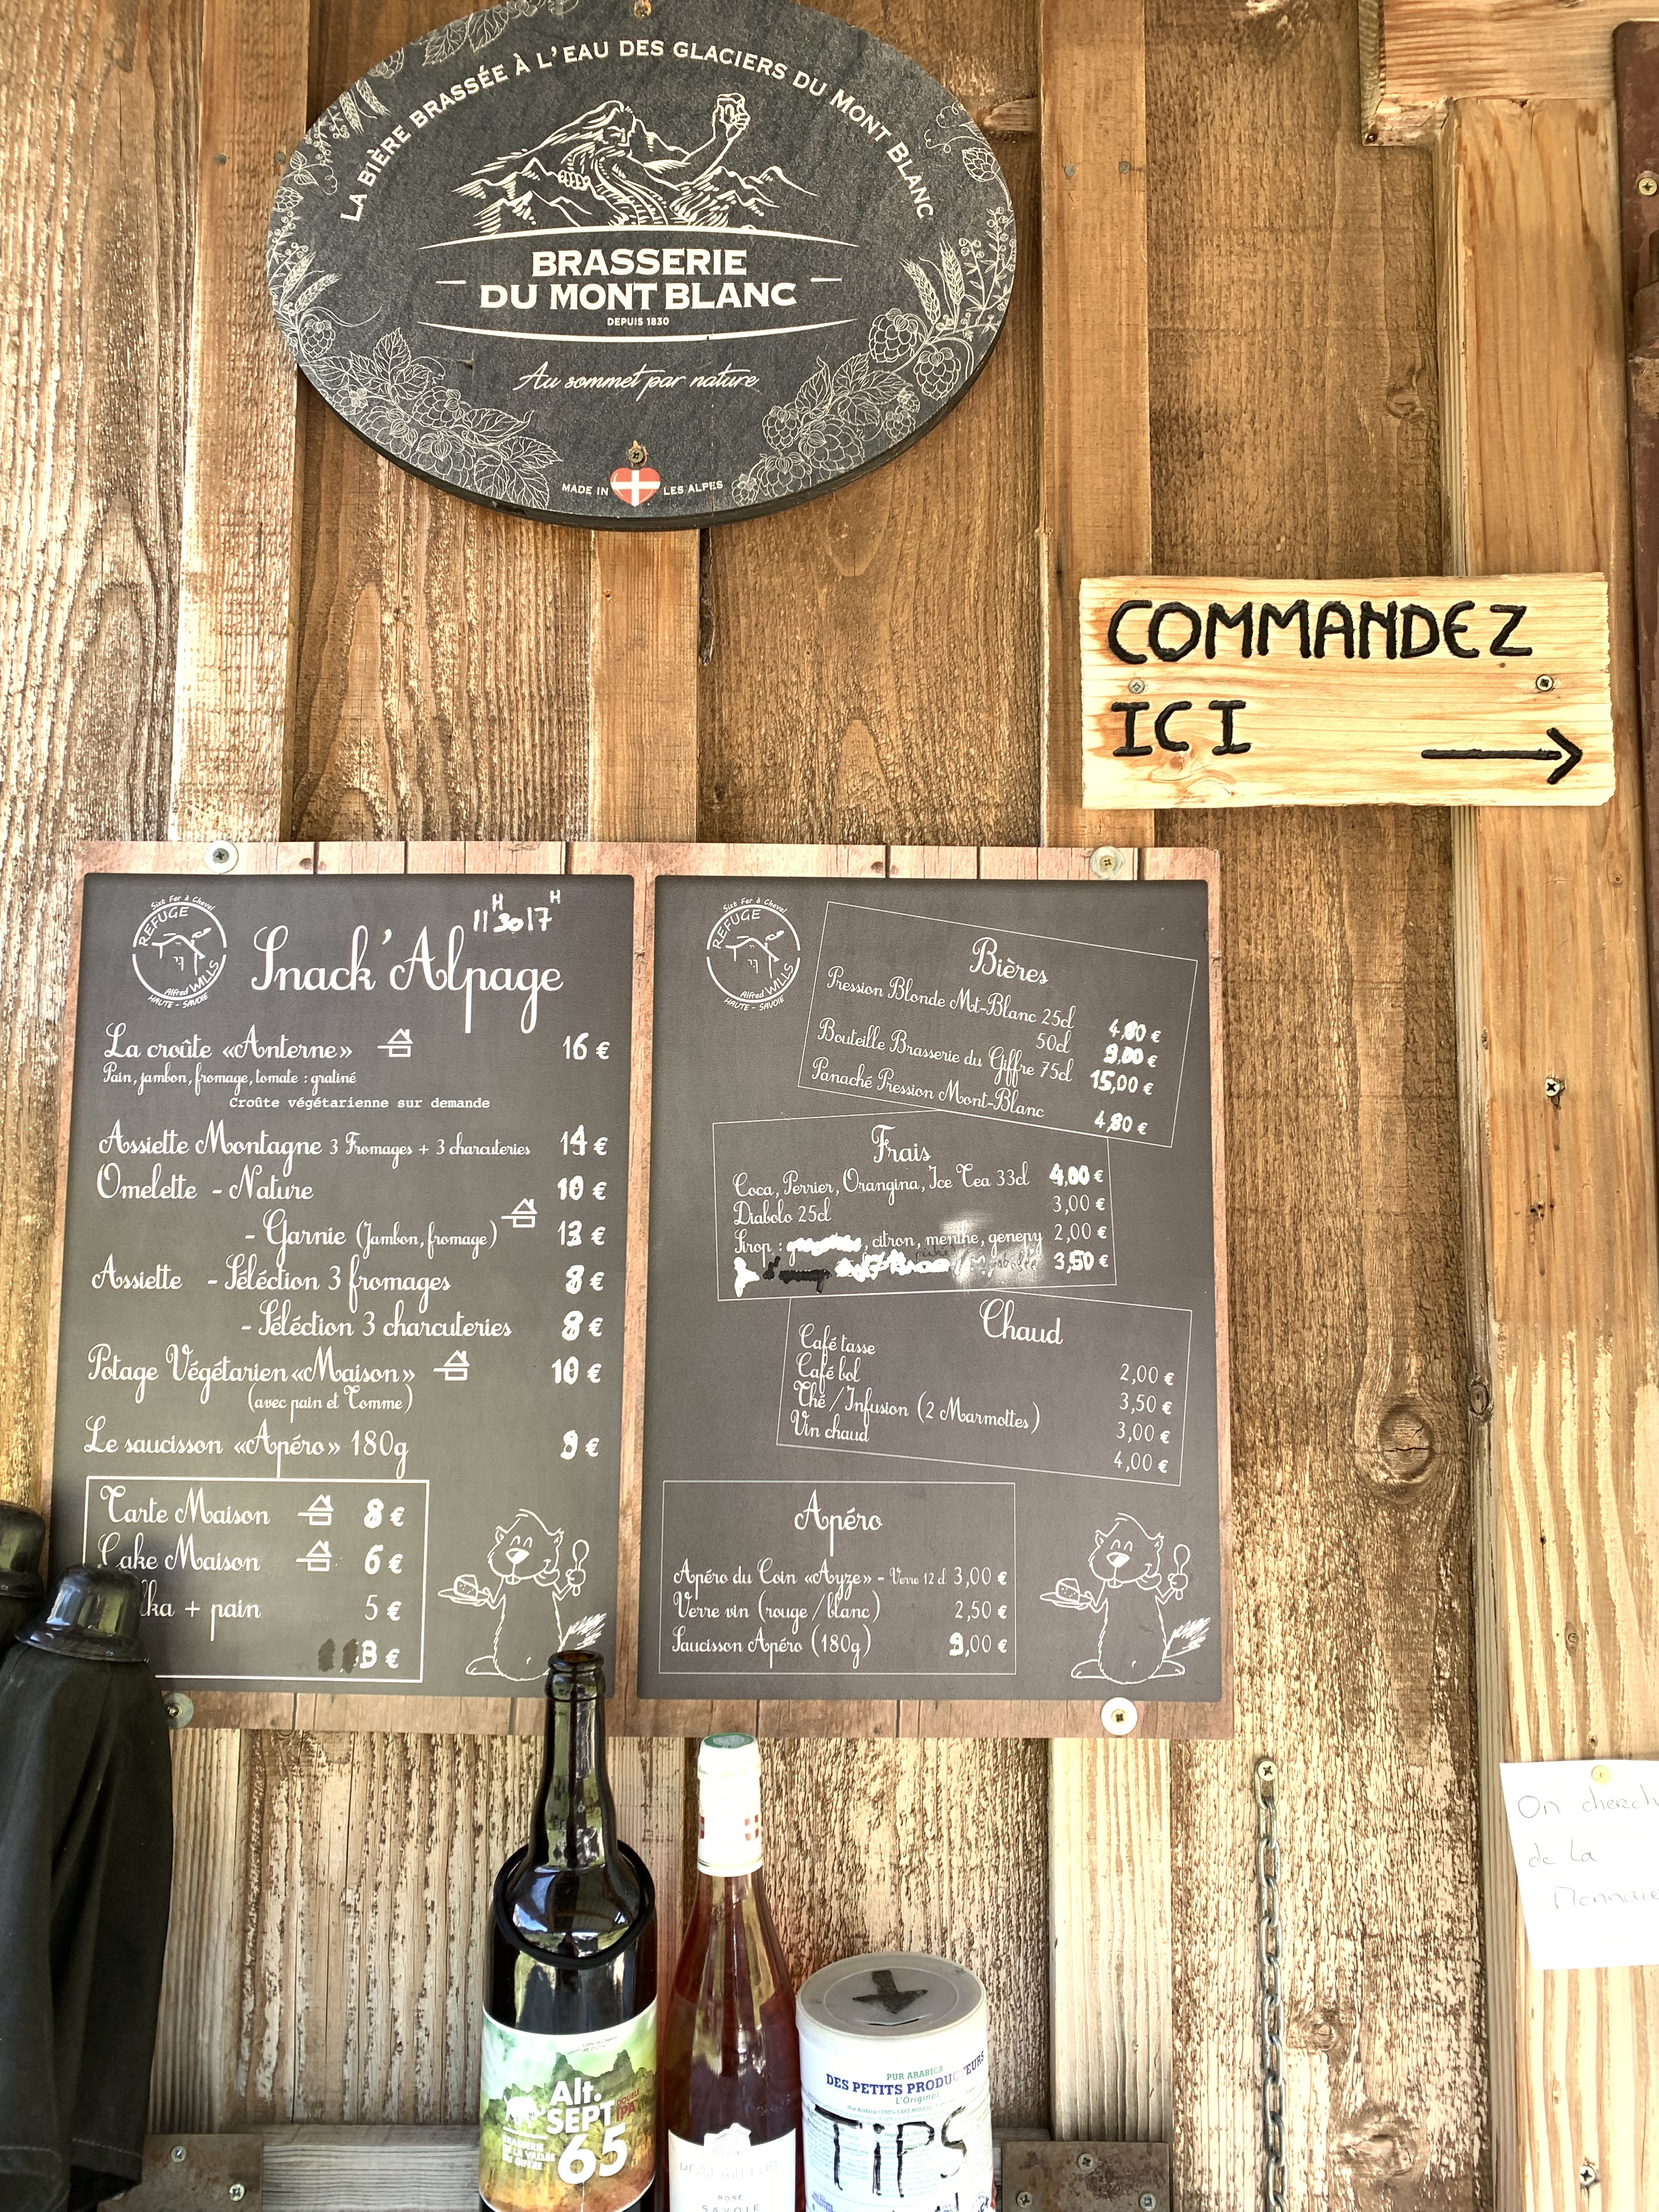 LA BIÈRE BRASSÉE À L'EAU DES GLACIERS DU MONT BLANC
BRASSERIE
DU MONT BLANC
DEPUIS 1830
Au sommet par nature
MADE IN LES ALPES
COMMANDEZ
ICI
Sixt Fer à Cheval
REFUGE
Alfred WILLS
HAUTE - SAVOIE
11H30 17H
Snack'Alpage
La croûte «Anterne» 16 €
Pain, jambon, fromage, tomate : gratiné
Croûte végétarienne sur demande
Assiette Montagne 3 Fromages + 3 charcuteries 14 €
Omelette - Nature 10 €
- Garnie (Jambon, fromage) 13 €
Assiette - Séléction 3 fromages 8 €
- Séléction 3 charcuteries 8 €
Potage Végétarien «Maison» 10 €
(avec pain et Tomme)
Le saucisson «Apéro» 180g 9 €
Tarte Maison 8 €
Cake Maison 6 €
+ pain 5 €
3 €
Sixt Fer à Cheval
REFUGE
Alfred WILLS
HAUTE - SAVOIE
Bières
Pression Blonde Mt-Blanc 25cl 4,80 €
50cl 9,00 €
Bouteille Brasserie du Giffre 75cl 15,00 €
Panaché Pression Mont-Blanc 4,80 €
Frais
Coca, Perrier, Orangina, Ice Tea 33cl 4,00 €
Diabolo 25cl 3,00 €
Sirop : , citron, menthe, genepy 2,00 €
3,50 €
Chaud
Café tasse 2,00 €
Café bol 3,50 €
Thé / Infusion (2 Marmottes) 3,00 €
Vin chaud 4,00 €
Apéro
Apéro du Coin «Ayze» - Verre 12 cl 3,00 €
Verre vin (rouge / blanc) 2,50 €
Saucisson Apéro (180g) 9,00 €
On
de la
Alt.
SEPT
65
DOUBLE
IPA
BRASSERIE
DE LA VALLÉE
DU GIFFRE
ROSÉ
SAVOIE
PUR ARABICA
DES PETITS PRODUCTEURS
L'Original
TIPS